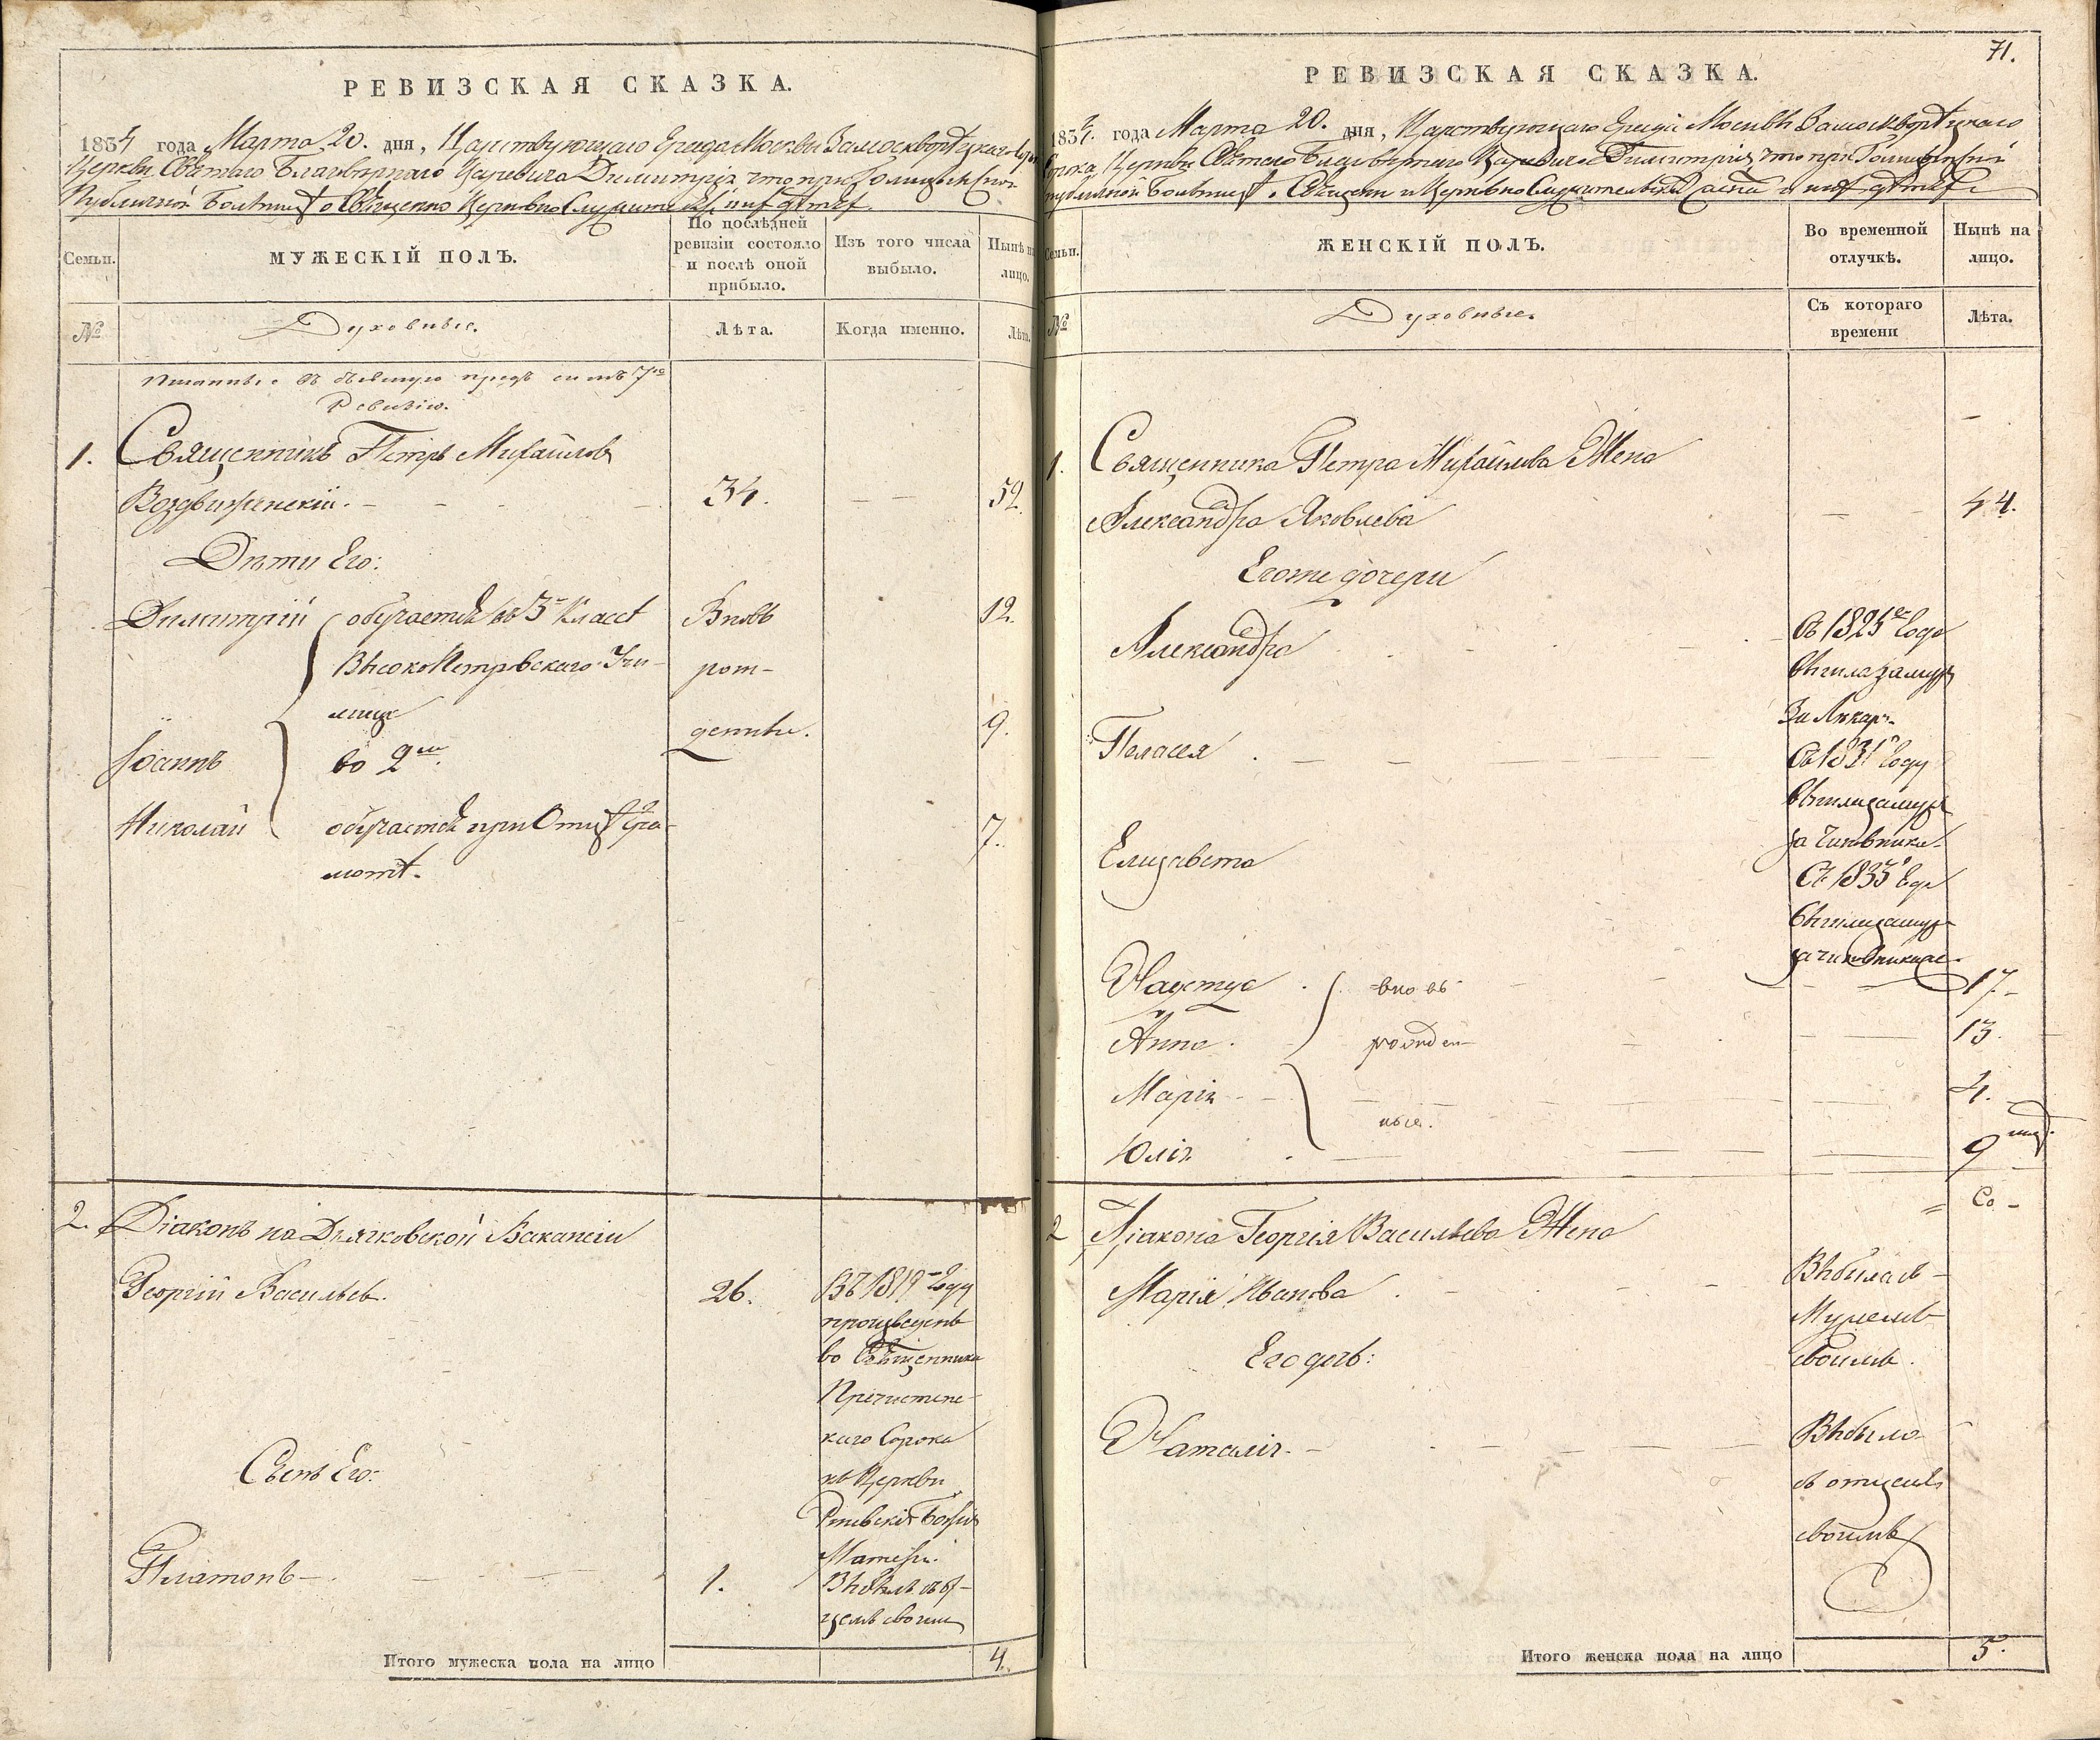 РЕВИЗСКАЯ СКАЗКА.
1834 года Марта 20. дня, Царствующаго Града Москвы Замоскворецкаго Сорока
Церкви Святаго Благовѣрнаго Царевича Димитрія что при Голицынской
Публичной Больницѣ о Священно Церковно Служителяхъ и ихъ дѣтяхъ
Семьи.
МУЖЕСКІЙ ПОЛЪ.
По послѣдней ревизіи состояло и послѣ оной прибыло.
Изъ того числа выбыло.
Нынѣ на лицо.
№
Духовные.
Лѣта.
Когда именно.
Лѣта.
Писанные въ бывшую предъ симъ 7ю
Ревизію.
1. Священникъ Петръ Михайловъ
Воздвиженскій. 34. 52.
Дѣти Его:
Димитрій обучается въ 3 Классѣ Вновь 12.
ВысокоПетровскаго Учи- рож-
лища денные. 9.
Іоаннъ во 2мъ
Николай обучается при Отцѣ Гра- 7.
мотѣ.
2. Діаконъ на Дьячковской Вакансіи
Георгій Васильевъ. 26. Въ 1819 Году
произведенъ
во Священника
Пречистенс-
каго Сорока
Сынъ Его: къ Церкви
Ржевскія Божія
Матери.
Платонъ 1. Выбылъ съ от-
цемъ своимъ
Итого мужеска пола на лицо 4.
71.
РЕВИЗСКАЯ СКАЗКА.
1834. года Марта 20. дня, Царствующаго Града Москвы Замоскворецкаго
Сорока, Церкви Святаго Благовѣрнаго Царевича Димитрія что при Голицынской
публичной Больницѣ о Священно и Церковно Служительскихъ и ихъ дѣтяхъ
Семьи.
ЖЕНСКІЙ ПОЛЪ.
Во временной отлучкѣ.
Нынѣ на лицо.
№
Духовные.
Съ котораго времени
Лѣта.
1. Священника Петра Михайлова Жена
Александра Яковлева 44.
Егоже дочери
Александра Въ 1825 Году
вышла замужъ
За Лѣкаря
Пелагея Въ 1831 Году
вышла замужъ
за Чиновника.
Елизавета Въ 1833 Году
вышла замужъ
за чиновника.
Надежда вновь 17
Анна. рожден- 13.
Марія ныя. 4.
Юлія 9 мѣс.
2 Діакона Георгія Васильева Жена
Марія Иванова Выбыла съ
Мужемъ
Его дочь: своимъ.
Наталія. Выбыла
съ отцемъ
своимъ
Итого женска пола на лицо 5.